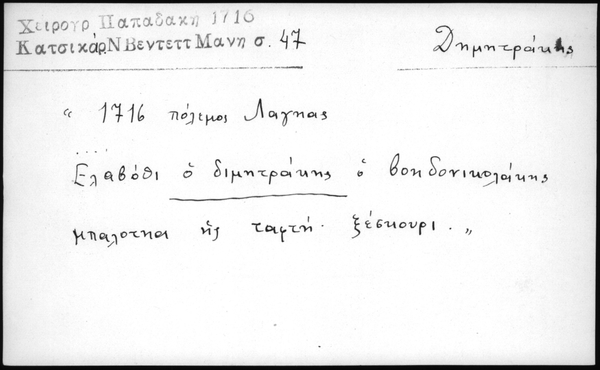 Χειρογρ Παπαδακη 1716
ΚατσικάρΝ Βεντεττ Μανη σ. 47
Δημητράκης
“ 1716 πόλεμος Λαγηας
....
Ελαβόθι ὁ διμητράκης ὁ βοηδονικολάκης
μπαλοτηαι ἠς ταφτή· ξέσκουρι. „